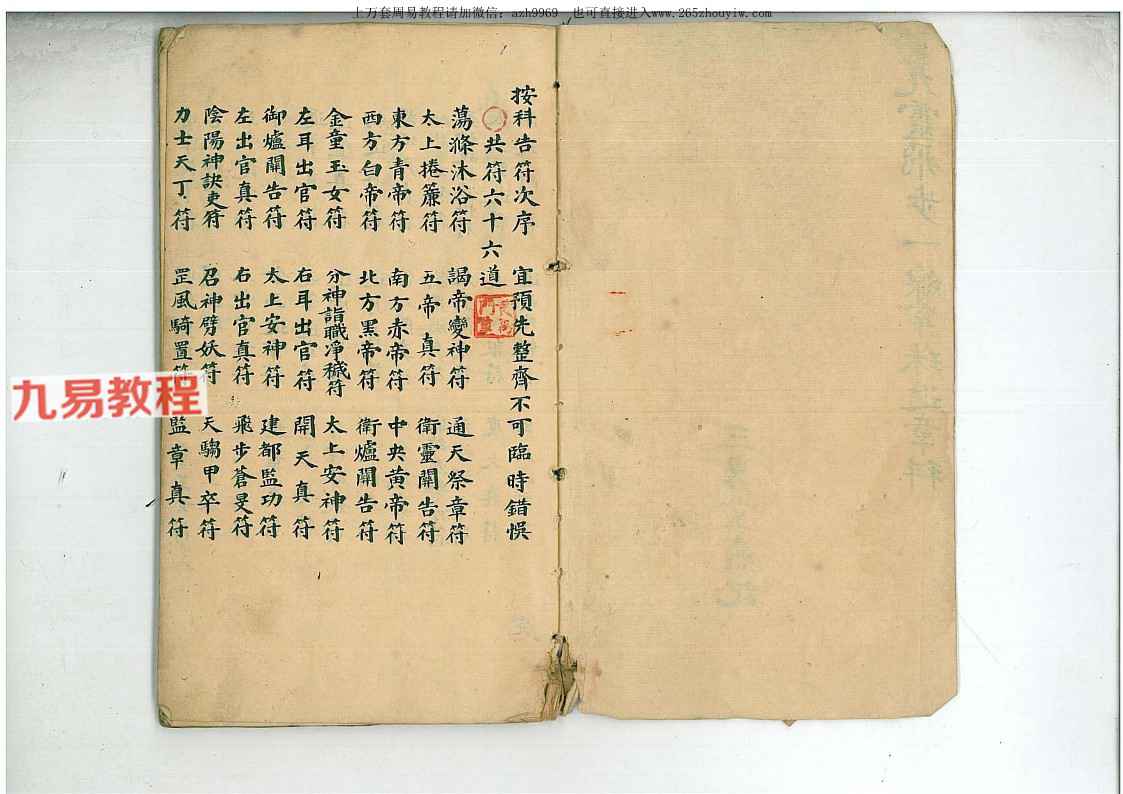 上万套周易教程请加微信：azh9969 也可直接进入www.265zhouyiw.com
按科告符次序 宜預先整齊不可臨時錯悮
共符六十六道
蕩滌沐浴符 謁帝變神符 通天祭章符
太上捲簾符 五帝真符 衛靈開告符
東方青帝符 南方赤帝符 中央黃帝符
西方白帝符 北方黑帝符 衛爐開告符
金童玉女符 分神詣職淨穢符 太上安神符
左耳出官符 右耳出官符 開天真符
御爐開告符 太上安神符 建都監功符
左出官真符 右出官真符 飛步蒼旻符
陰陽神訣吏符 召神劈妖符 天騶甲卒符
力士天丁符 罡風騎置符 監章真符
九易教程